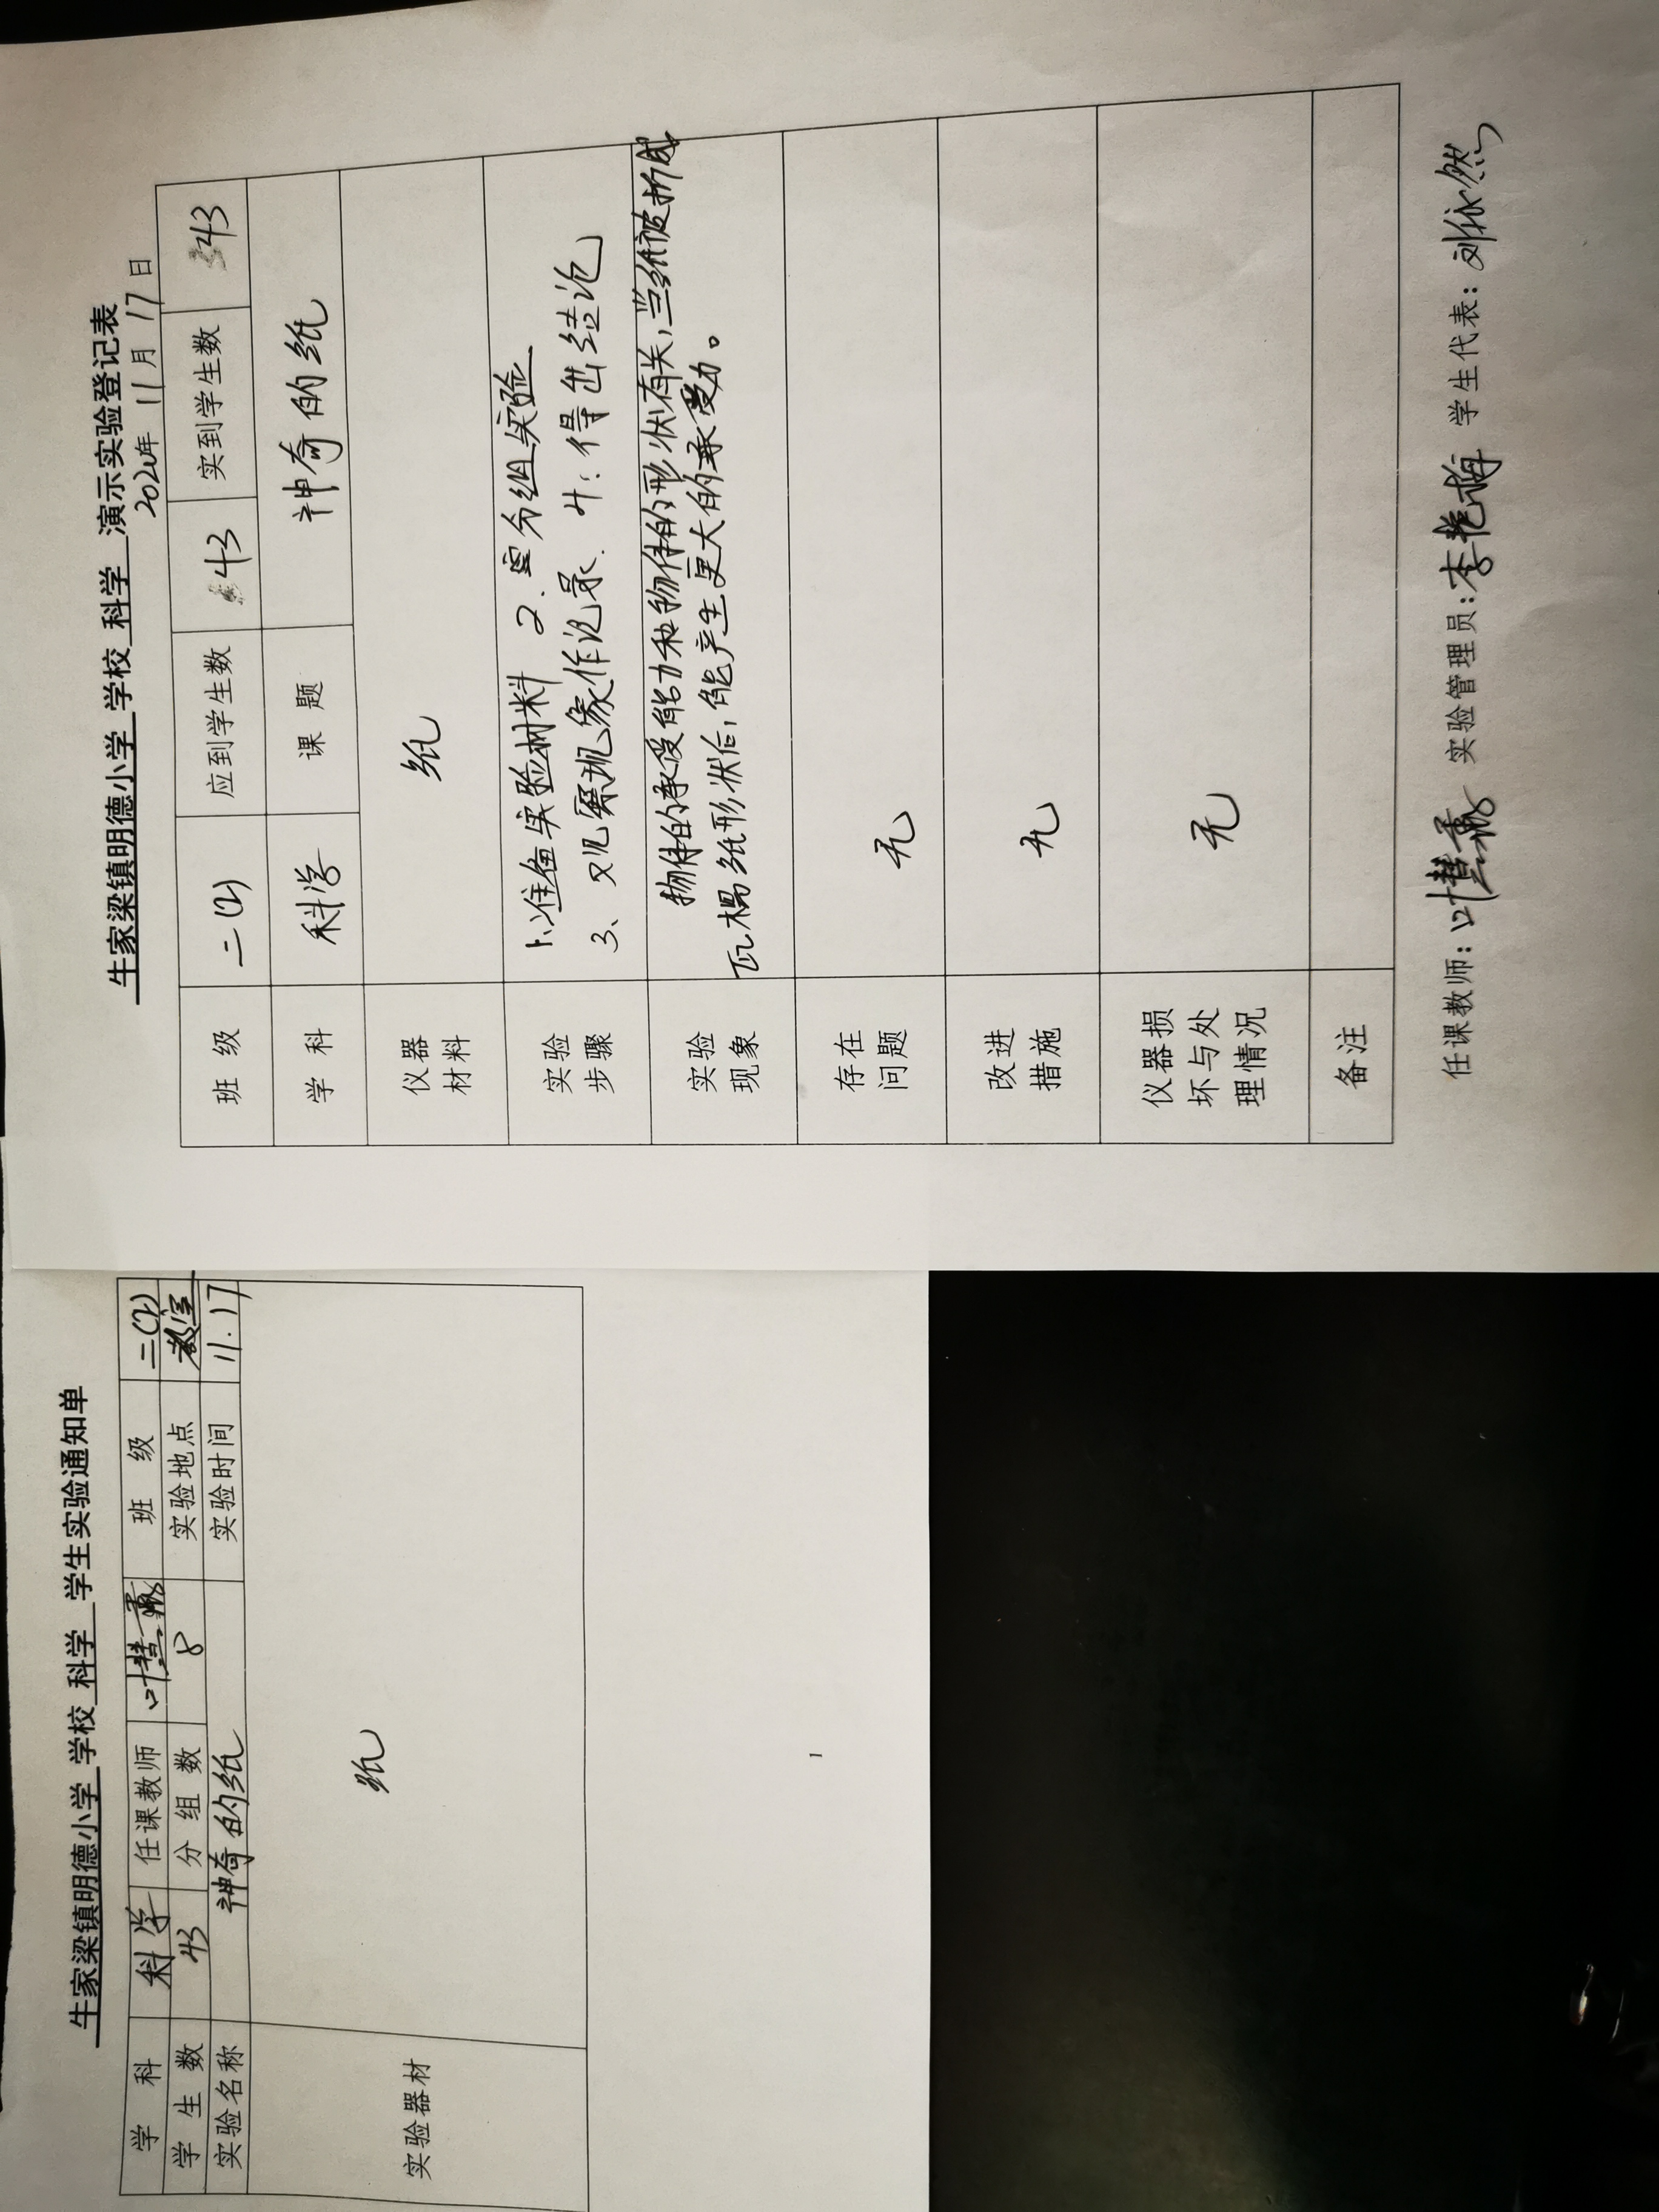 牛家梁镇明德小学 学校 科学 学生实验通知单
学 科 科学 任课教师 叶慧燕 班 级 二(2)
学 生 数 43 分 组 数 8 实验地点 教室
实验名称 神奇的纸 实验时间 11.17
实验器材 纸
1
牛家梁镇明德小学 学校 科学 演示实验登记表
2020年 11月 17日
班 级 二(2) 应到学生数 43 实到学生数 43
学 科 科学 课 题 神奇的纸
仪器
材料 纸
实验
步骤 1、准备实验材料 2、分组实验
3、观察现象作记录. 4:得出结论
实验
现象 物体的承受能力和物体的形状有关,当纸被折成
瓦楞纸形状后,能产生更大的承受力。
存在
问题 无
改进
措施 无
仪器损
坏与处
理情况 无
备注
任课教师:叶慧燕 实验管理员:李艳梅 学生代表:刘依然